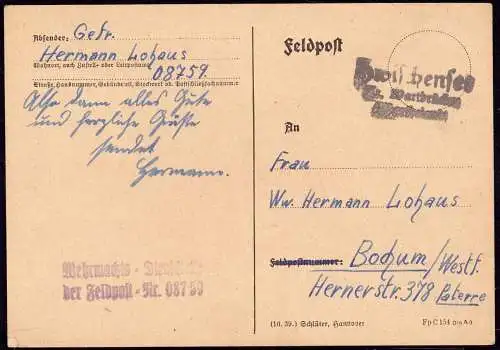 Absender: Gefr.
Hermann Lohaus
Wohnort, auch Zustell- oder Leitpostamt
08759
Straße, Hausnummer, Gebäudeteil, Stockwerk od. Postschließfachnummer
Also dann alles Gute
und herzliche Grüße
sendet
Hermann.
Wehrmachts-
der Feldpost-Nr. 08759
Feldpost
Zwischensee
An
Frau
Ww. Hermann Lohaus
Feldpostnummer: Bochum/Westf.
Hernerstr. 378 Paterre
(10. 39.) Schlüter, Hannover
Fp C 154 DIN A 6